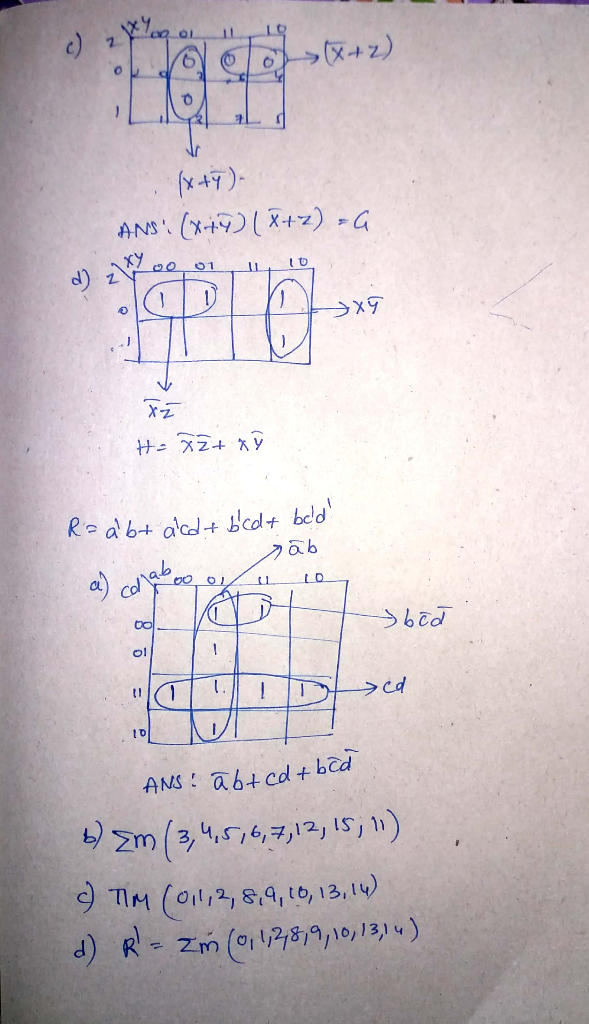 c) z xy 00 01 11 10
0 0 0 0 → (x̄+z)
1 0
(x+ȳ)
ANS: (x+ȳ)(x̄+z) = G
d) z xy 00 01 11 10
0 1 1 1 → xȳ
1 1
x̄z̄
H = x̄z̄ + xȳ
R = a'b + a'cd + b'cd + bc'd'
āb
a) cd ab 00 01 11 10
00 1 1 → bc̄d̄
01 1
11 1 1 1 1 → cd
10 1
ANS: āb+cd+bc̄d̄
b) Σm (3,4,5,6,7,12,15,11)
c) ΠM (0,1,2,8,9,10,13,14)
d) R' = Σm (0,1,2,8,9,10,13,14)